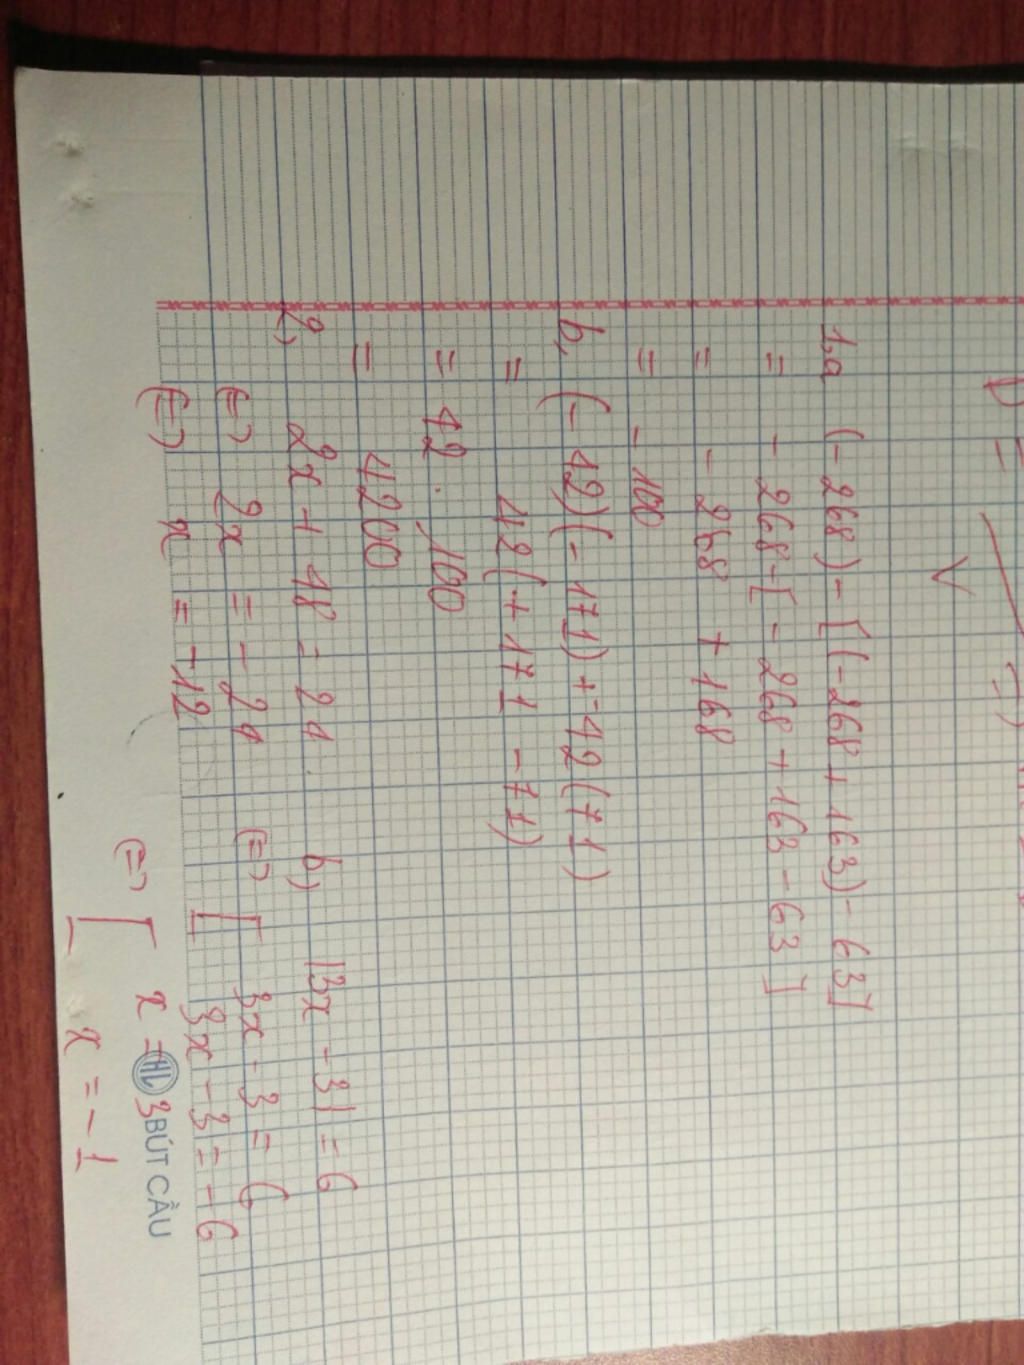 1,a (-268) - [(-268 + 163) - 63]
= - 268 - [ - 268 + 163 - 63 ]
= - 268 + 168
= - 100
b, (- 42)(- 171) + -42 (71)
= 42 ( + 171 - 71)
= 42 . 100
= 4200
2, 2x + 48 = 24.
(=) 2x = - 24
(=) x = -12
b) |3x - 3| = 6
(=) [ 3x - 3 = 6
3x - 3 = - 6
(=) [ x = 3
x = - 1
HL BÚT CẦU